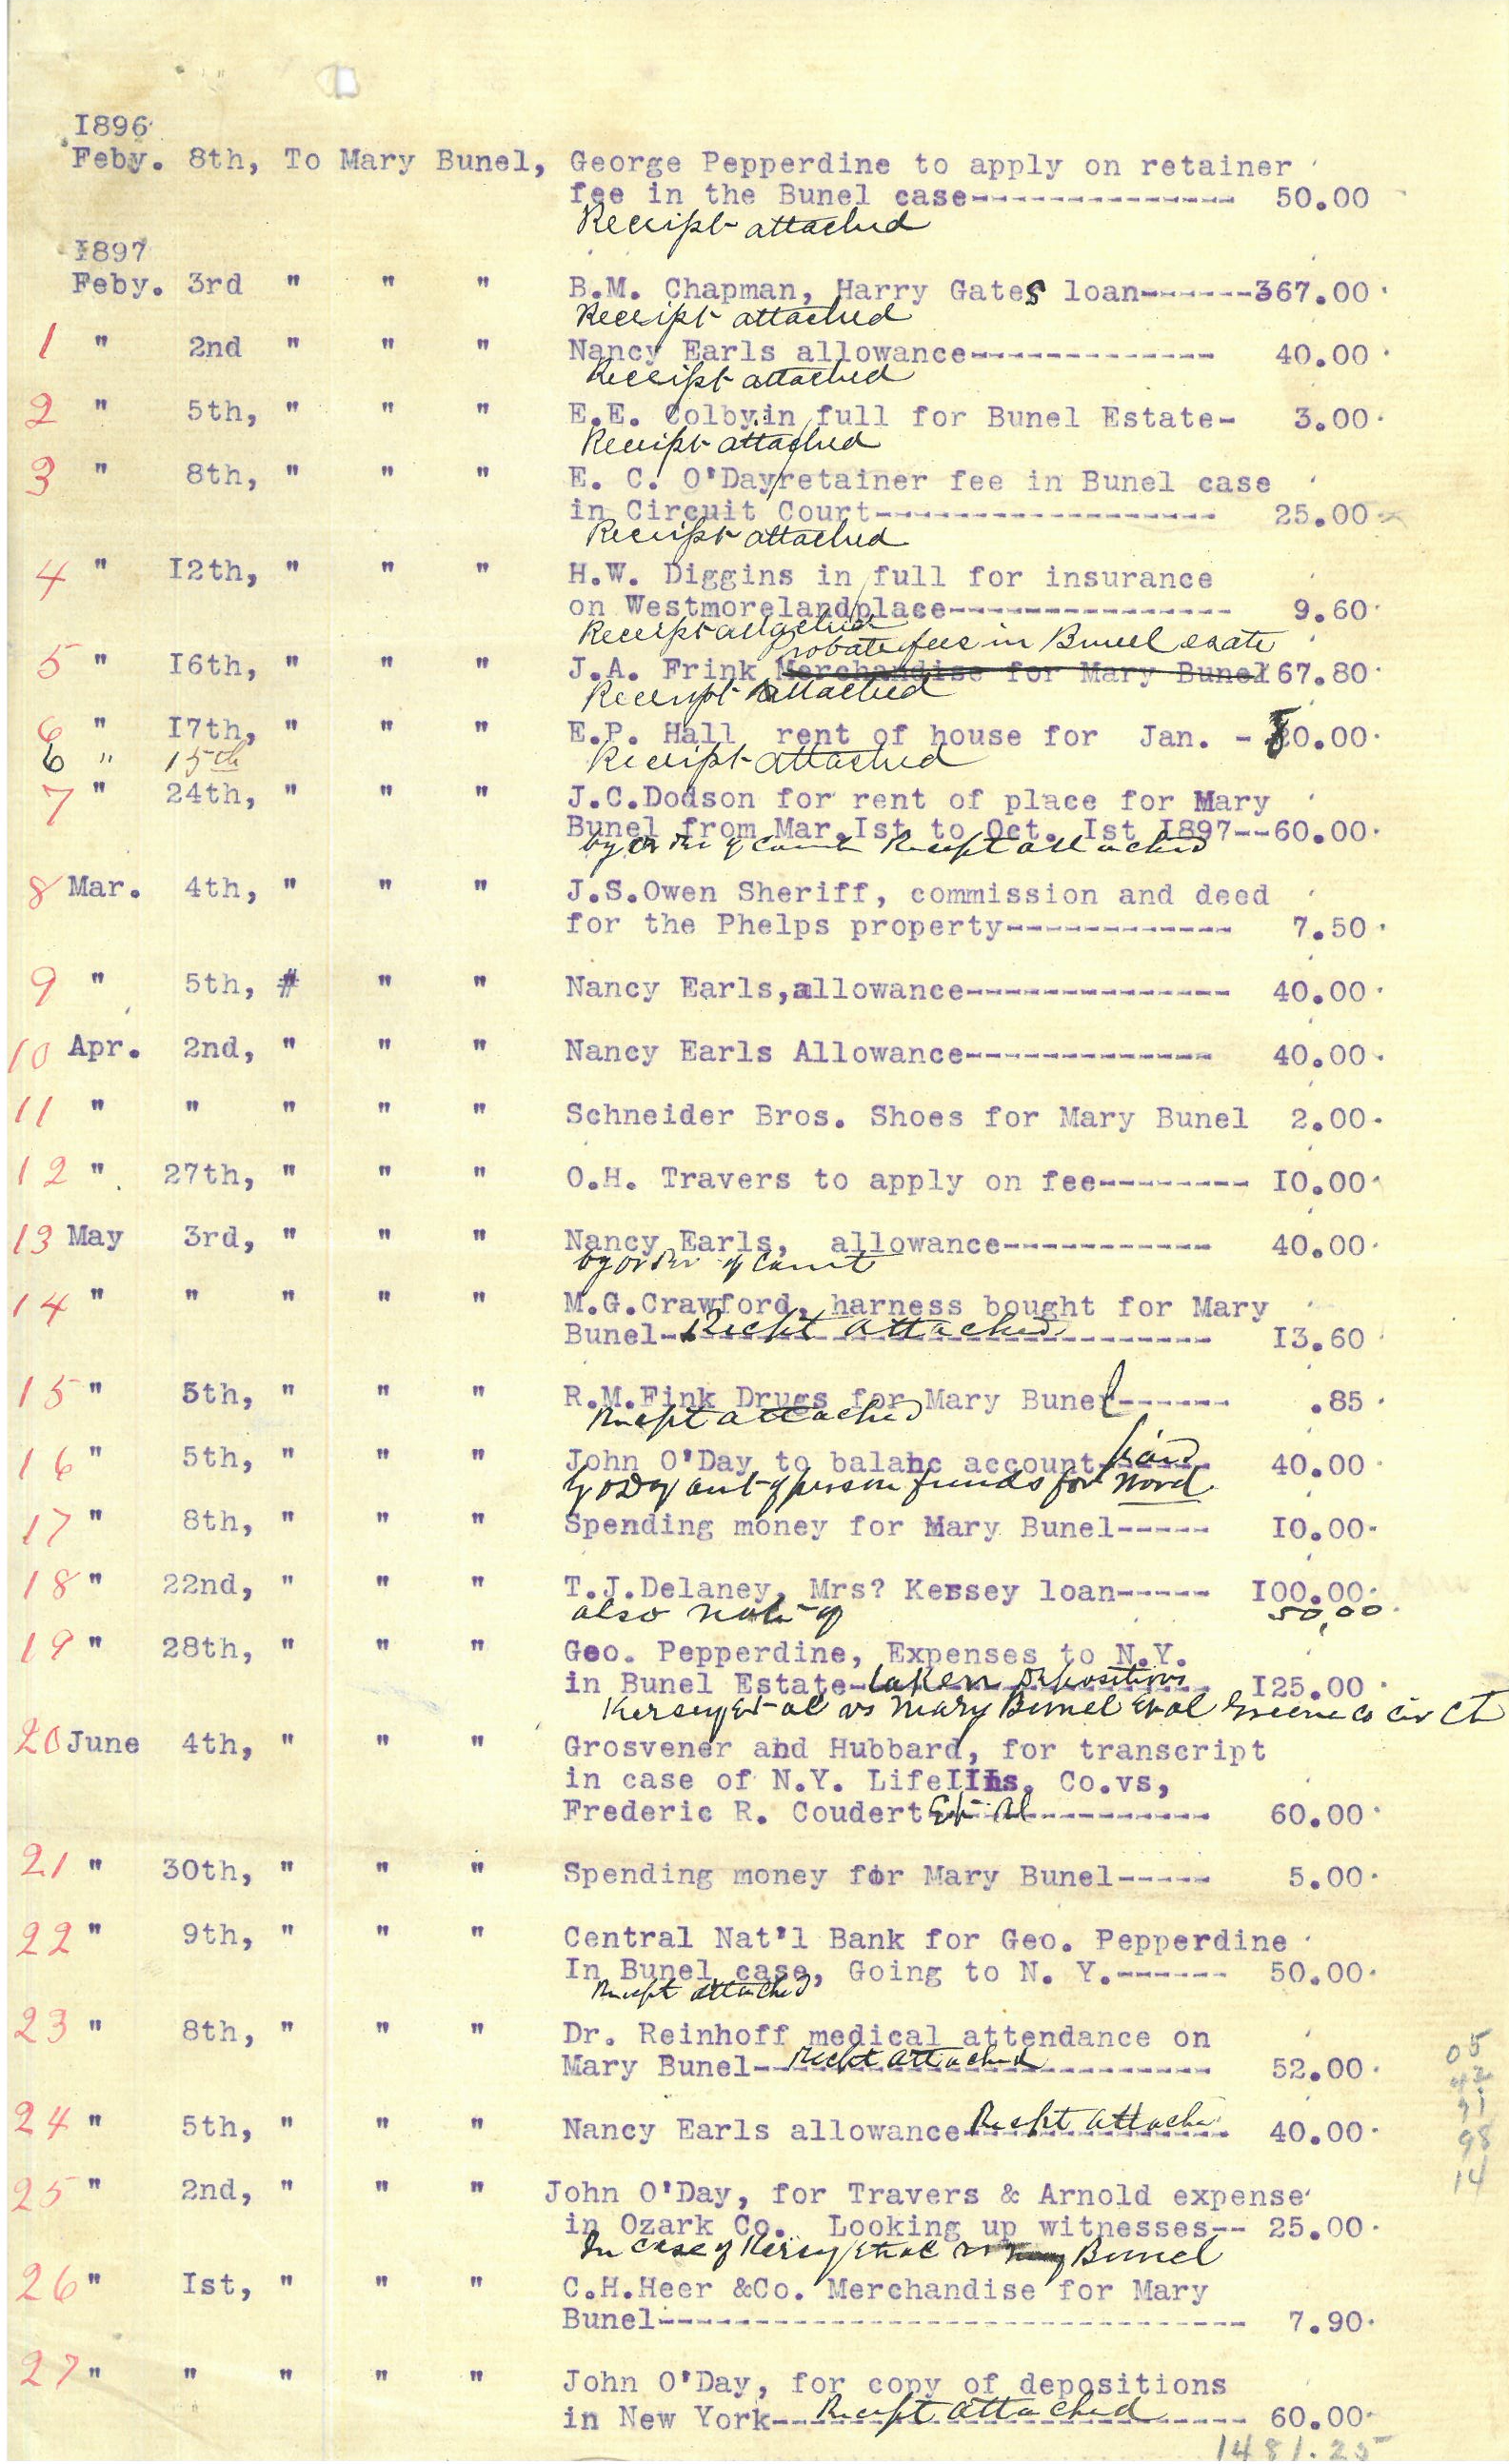 1896
Feby. 8th, To Mary Bunel, George Pepperdine to apply on retainer
fee in the Bunel case-------------- 50.00
Receipt attached
1897
Feby. 3rd " " " B.M. Chapman, Harry Gates loan------367.00
Receipt attached
1 " 2nd " " " Nancy Earls allowance------------- 40.00
Receipt attached
2 " 5th, " " " E.E. Colby.in full for Bunel Estate- 3.00
Receipt attached
3 " 8th, " " " E. C. O'Day/retainer fee in Bunel case
in Circuit Court------------------ 25.00
Receipt attached
4 " I2th, " " " H.W. Diggins in full for insurance
on Westmoreland/place--------------- 9.60
Receipt attached
Probate fees in Bunel esate
5 " I6th, " " " J.A. Frink Merchandise for Mary Bunel 67.80
Receipt attached
6 " I7th, " " " E.P. Hall rent of house for Jan. - 0.00
6 " 15th Receipt attached
7 " 24th, " " " J.C.Dodson for rent of place for Mary
Bunel from Mar.Ist to Oct. Ist I897--60.00
by order of court Recept attached
8 Mar. 4th, " " " J.S.Owen Sheriff, commission and deed
for the Phelps property------------ 7.50
9 " 5th, # " " Nancy Earls,allowance-------------- 40.00
10 Apr. 2nd, " " " Nancy Earls Allowance------------- 40.00
11 " " " " " Schneider Bros. Shoes for Mary Bunel 2.00
12 " 27th, " " " O.H. Travers to apply on fee-------- I0.00
13 May 3rd, " " " Nancy Earls, allowance----------- 40.00
by order of Court
14 " " " " " M.G.Crawford, harness bought for Mary
Bunel- Recept attached -------- I3.60
15 " 5th, " " " R.M.Fink Drugs for Mary Bunel------ .85
Recept attached
16 " 5th, " " " John O'Day to balahc account- paid 40.00
by O Day out of person funds for Ward
17 " 8th, " " " Spending money for Mary Bunel----- I0.00
18 " 22nd, " " " T.J.Delaney, Mrs? Kersey loan----- I00.00
also note of 50,00
19 " 28th, " " " Geo. Pepperdine, Expenses to N.Y.
in Bunel Estate- taken Depositions I25.00
Kersey Et al vs Mary Bunel Et al Greene Co Cir Ct
20 June 4th, " " " Grosvener and Hubbard, for transcript
in case of N.Y. LifeIIns, Co.vs,
Frederic R. Coudert Et Al ----------- 60.00
21 " 30th, " " " Spending money for Mary Bunel----- 5.00
22 " 9th, " " " Central Nat'l Bank for Geo. Pepperdine
In Bunel case, Going to N. Y.------ 50.00
Recept attached
23 " 8th, " " " Dr. Reinhoff medical attendance on
Mary Bunel-- Recpt attached --------- 52.00
24 " 5th, " " " Nancy Earls allowance- Recept attache 40.00
25 " 2nd, " " " John O'Day, for Travers & Arnold expense
in Ozark Co. Looking up witnesses-- 25.00
In Case of Kersey et al vs Bunel
26 " Ist, " " " C.H.Heer &Co. Merchandise for Mary
Bunel------------------------------- 7.90
27 " " " " " John O'Day, for copy of depositions
in New York-- Recept attached ---- 60.00
1481.25
05
42
91
98
14